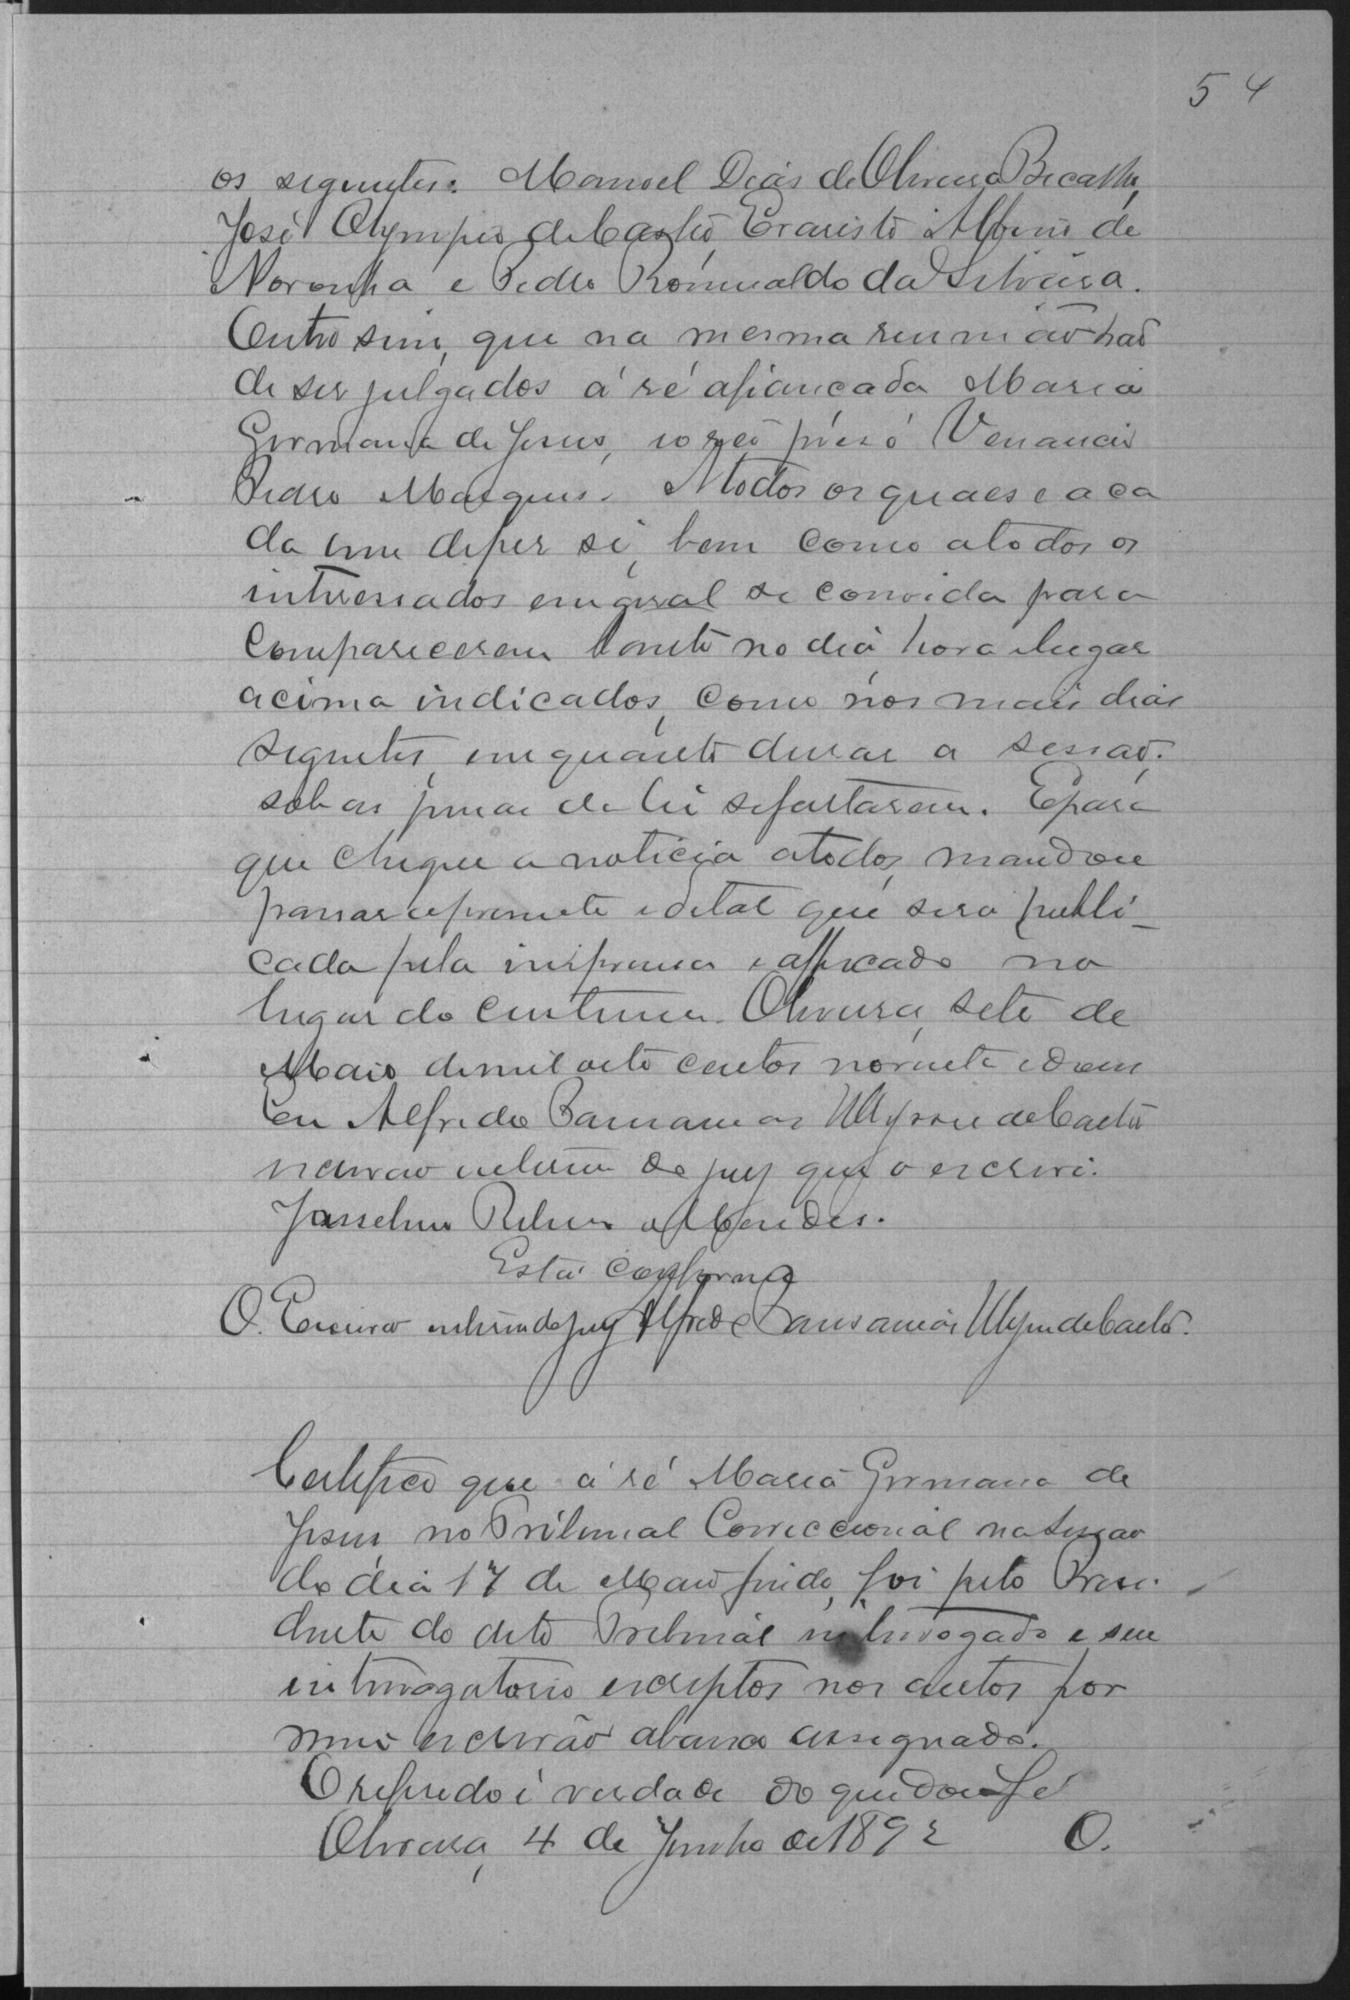 54
os seguintes: Manoel Dias de Oliveira
José Olympio de Castro, Evaristo Albino de
Noronha e Pedro Romualdo da Silveira.
Outro sim, que na mesma reunião hão
de ser julgados a ré afiançada Maria
Germana de Jesus, e o réo preso Venancio
Pedro Marques. A todos os quaes e a ca
da um de per si, bem como a todos os
interessados em geral se convida para
comparecerem tanto no dia, hora e lugar
acima indicados, como nos mais dias
seguintes, em quanto durar a sessão.
sob as penas da lei se faltarem. E para
que chegue a noticia a todos, mandou
passar o presente edital que será publi-
cada pela imprensa e affixado no
lugar do custume. Oliveira, sete de
Maio de mil oito centos noventa e dous
Eu Alfredo Pausanias Ulysses de Castro
escrivão interino do jury que o escrevi.
Josselino Ribeiro Mendes.
Está conforme
O. Escrivão interino do jury Alfredo Pausanias Ulysses de Castro.
Certifico que a ré Maria Germana de
Jesus no Tribunal Correccional na sessão
do dia 17 de Maio findo, foi pelo Presi-
dente do dito Tribunal interrogado e seu
interrogatorio escriptos nos autos por
mim escrivão abaixo assignado.
O referido é verdade do que dou fé
Oliveira, 4 de Junho de 1892 O.